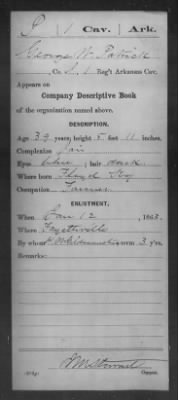 P | 1 Cav. | Ark.
George W. Patrick
Co. , 1 Reg't Arkansas Cav.
Appears on
Company Descriptive Book
of the organization named above.
DESCRIPTION.
Age 39 years; height 5 feet 11 inches.
Complexion Fair
Eyes blue ; hair dark
Where born Floyd Ky
Occupation Farmer
ENLISTMENT.
When Jan 12 , 1863.
Where Fayetteville
By whom ; term 3 y'rs.
Remarks:
Copyist.